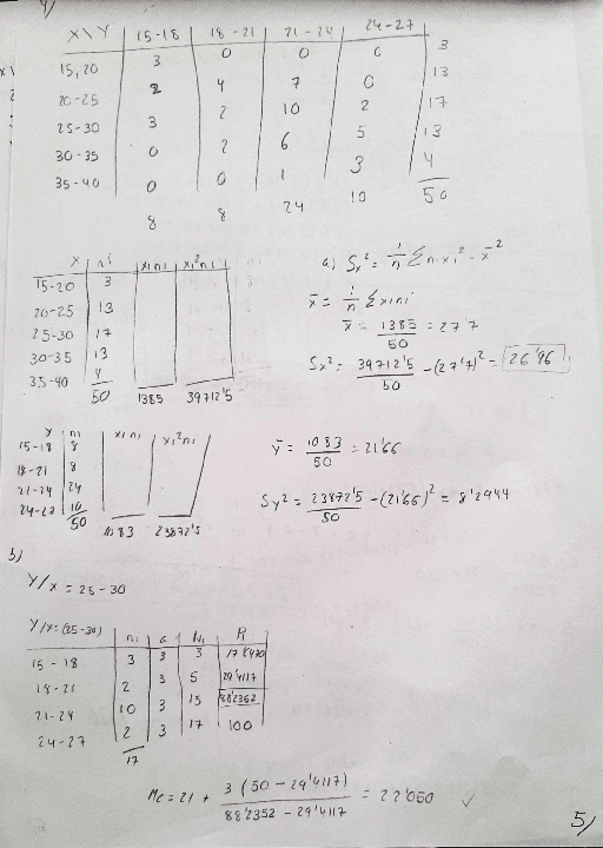 4/
X\Y 15-18 18-21 21-24 24-27
15,20 3 0 0 0 3
20-25 2 4 7 0 13
25-30 3 2 10 2 17
30-35 0 2 6 5 13
35-40 0 0 1 3 4
8 8 24 10 50
X ni xini xi²ni
15-20 3
20-25 13
25-30 17
30-35 13
35-40 4
50 1385 39712'5
a) Sx² = 1/n Σ ni xi² - x̄²
x̄ = 1/n Σ xini
x̄ = 1385/50 = 27'7
Sx² = 39712'5/50 - (27'7)² = 26'96
Y ni xini xi²ni
15-18 8
18-21 8
21-24 24
24-27 10
50 1083 23872'5
ȳ = 1083/50 = 21'66
Sy² = 23872'5/50 - (21'66)² = 8'2944
b)
Y/x = 25-30
Y/x=(25-30) ni a Ni Pi
15-18 3 3 3 17'6470
18-21 2 3 5 29'4117
21-24 10 3 15 88'2352
24-27 2 3 17 100
17
Mc = 21 + 3(50 - 29'4117)/88'2352 - 29'4117 = 22'050 ✓
5/